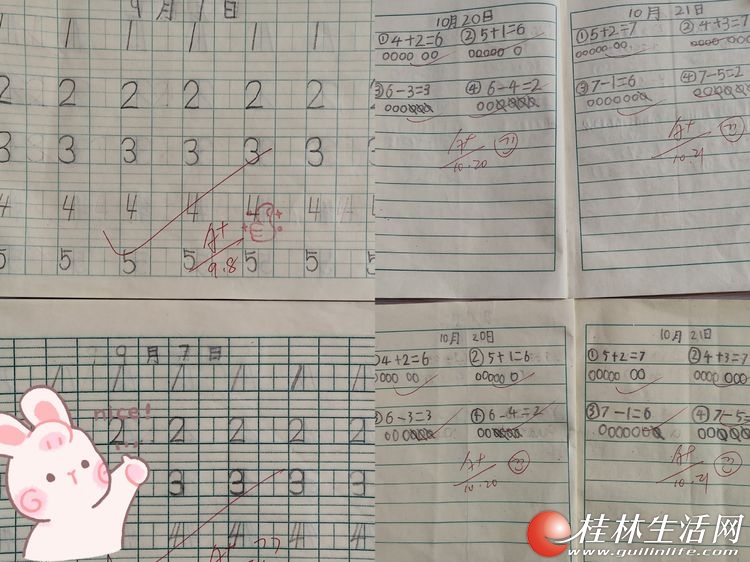 9月7日
1 1 1 1 1
2 2 2 2 2 2
3 3 3 3 3 3
4 4 4 4 4 4
5 5 5 5 5 5
A+
9.8
10月20日
①4+2=6 ②5+1=6
③6-3=3 ④6-4=2
A+
10.20
10月21日
①5+2=7 ②4+3=7
③7-1=6 ④7-5=2
A+
10.21
9月7日
1 1 1 1 1
nice!
2 2 2 2 2
3 3 3 3
4 4 4
A+
10月20日
4+2=6 ②5+1=6
6-3=3 ④6-4=2
A+
10.20
10月21日
①5+2=7 ②4+3=7
③7-1=6 ④7-5=
A+
10.21
桂林生活网
www.guilinlife.com